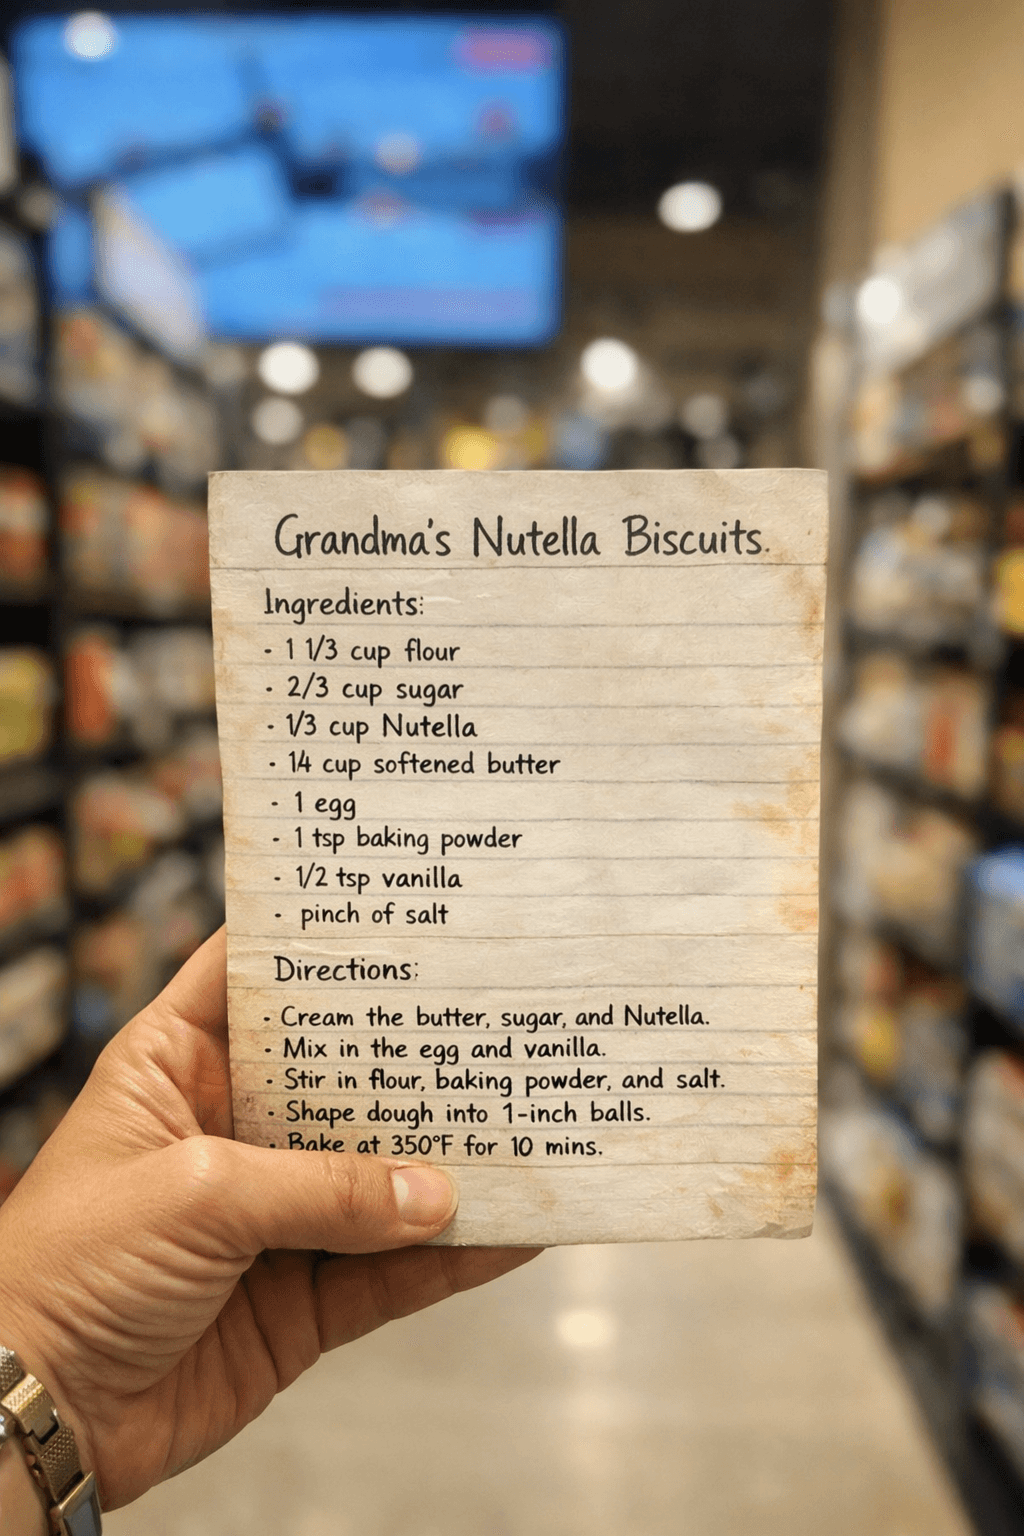 Grandma's Nutella Biscuits.
Ingredients:
- 1 1/3 cup flour
- 2/3 cup sugar
- 1/3 cup Nutella
- 14 cup softened butter
- 1 egg
- 1 tsp baking powder
- 1/2 tsp vanilla
- pinch of salt
Directions:
- Cream the butter, sugar, and Nutella.
- Mix in the egg and vanilla.
- Stir in flour, baking powder, and salt.
- Shape dough into 1-inch balls.
- Bake at 350°F for 10 mins.